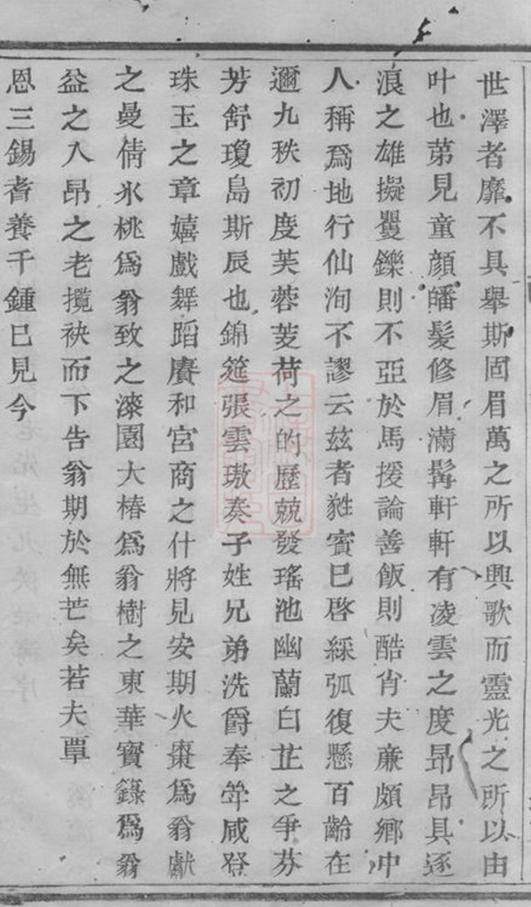 世澤者靡不具舉斯固眉萬之所以興歌而靈光之所以由
叶也苐見童顏皤髮修眉滿髯軒軒有凌雲之度昂昂具逐
浪之雄擬矍鑠則不亞於馬援論善飯則酷肖夫廉頗鄉中
人稱爲地行仙洵不謬云玆者甤賓巳啓綵弧復懸百齡在
邇九秩初度芙蓉芰荷之的歷競發瑤池幽蘭白芷之爭芬
芳舒瓊島斯辰也錦筵張雲璈奏子姓兄弟洗爵奉斝咸登
珠玉之章嬉戲舞蹈賡和宮商之什將見安期火棗爲翁獻
之曼倩氷桃爲翁致之漆園大椿爲翁樹之東華寶籙爲翁
益之入昂之老攬袂而下告翁期於無芒矣若夫覃
恩三錫耆養千鍾巳見今